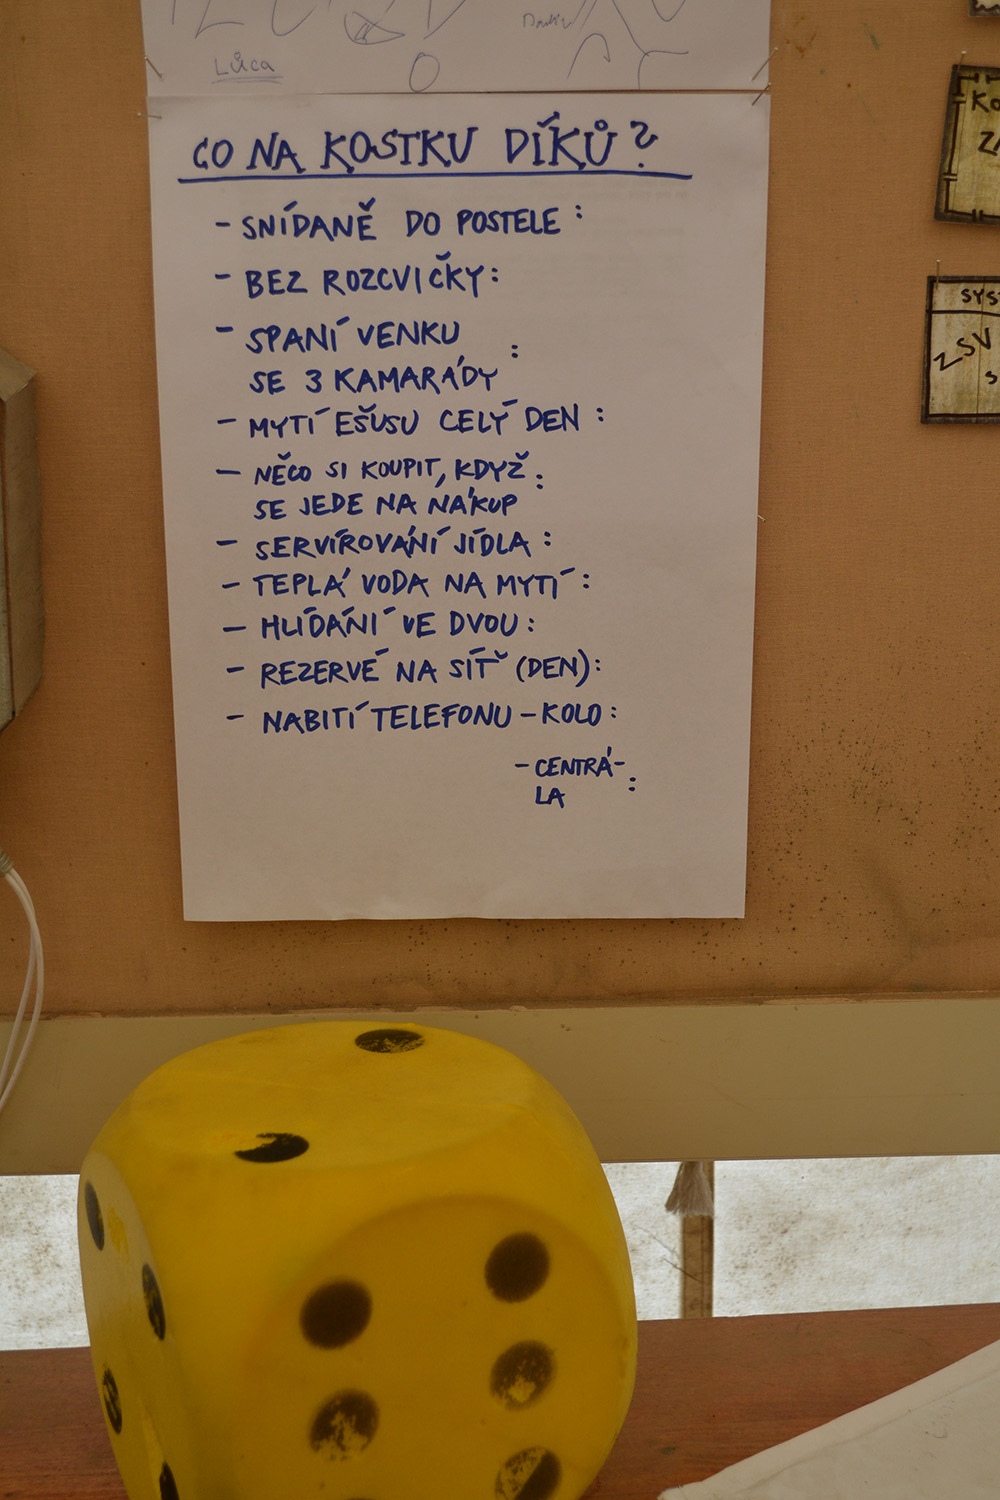 Lůca
CO NA KOSTKU DÍKŮ?
- SNÍDANĚ DO POSTELE:
- BEZ ROZCVIČKY:
- SPANÍ VENKU
SE 3 KAMARÁDY :
- MYTÍ EŠUSU CELÝ DEN :
- NĚCO SI KOUPIT, KDYŽ :
SE JEDE NA NÁKUP
- SERVÍROVÁNÍ JÍDLA :
- TEPLÁ VODA NA MYTÍ :
- HLÍDÁNÍ VE DVOU :
- REZERVÉ NA SÍŤ (DEN):
- NABITÍ TELEFONU - KOLO :
- CENTRÁ-
LA :
SYS